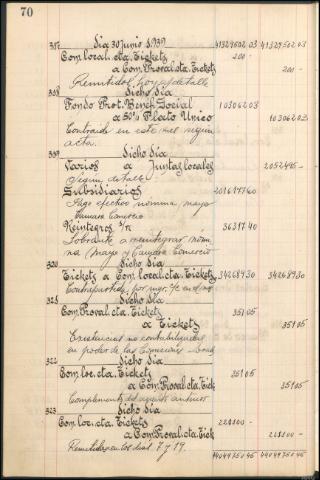 70
317 Dia 30 junio 1937 41329602 03 41329602 03
Com. local. cta. Tickets 200 -
a Com. Proval. cta. Tickets 200 -
Remitidos, hoja detalle
318 Dicho dia
Fondo Prot. Benef. Social 10306203
a 50% Plato Unico 10306203
Contraida en este mes segun
acta.
319 Dicho dia
Varios a Juntas locales 2052495 -
Según detalle
Subsidiarios 201617760
Pago efectos nómina mayo
Camara Comercio
Reintegros s/n 3631740
Sobrante a reintegrar nómi
na (Mayo) y Camara Comercio
320 Dicho dia
Tickets a Com. local. cta. Tickets 34268930 34268930
Contrapartida por
321 Dicho dia
Com. Proval. cta. Tickets 35105
a Tickets 35105
Existencias no contabilizadas
en poder de las Comisiones
322 Dicho dia
Com. loc. cta. Tickets 35105
a Com. Proval. cta. Tick 35105
Complemento del asiento anterior
323 Dicho dia
Com. loc. cta. Tickets 228100 -
a Com. Proval. cta. Tick 228100 -
Remitidas en los dias 7 y 19.
4404975045 4404975045